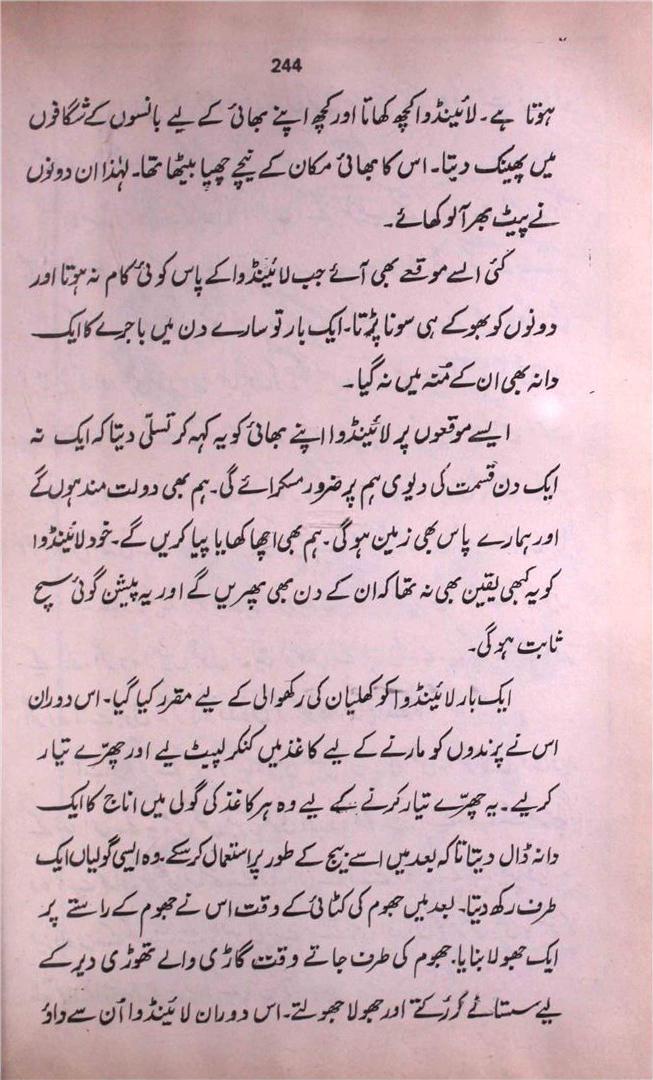 244
ہوتا ہے۔ لائینڈوا کچھ کھاتا اور کچھ اپنے بھائی کے لیے بانسوں کے شگافوں
میں پھینک دیتا۔ اس کا بھائی مکان کے نیچے چھپا بیٹھا تھا۔ لہٰذا ان دونوں
نے پیٹ بھر آلو کھائے۔
کئی ایسے موقعے بھی آئے جب لائینڈوا کے پاس کوئی کام نہ ہوتا اور
دونوں کو بھوکے ہی سونا پڑتا۔ ایک بار تو سارے دن میں باجرے کا ایک
دانہ بھی ان کے مُنہ میں نہ گیا۔
ایسے موقعوں پر لائینڈوا اپنے بھائی کو یہ کہہ کر تسلّی دیتا کہ ایک نہ
ایک دن قسمت کی دیوی ہم پر ضرور مسکرائے گی۔ ہم بھی دولت مند ہوں گے
اور ہمارے پاس بھی زمین ہو گی۔ ہم بھی اچھا کھایا پیا کریں گے۔ خود لائینڈوا
کو یہ کبھی یقین بھی نہ تھا کہ ان کے دن بھی پھریں گے اور یہ پیشن گوئی سچ
ثابت ہو گی۔
ایک بار لائینڈوا کو کھلیان کی رکھوالی کے لیے مقرر کیا گیا۔ اس دوران
اس نے پرندوں کو مارنے کے لیے کاغذ میں کنکر لپیٹ لیے اور چھرّے تیار
کر لیے۔ یہ چھرّے تیار کرنے کے لیے وہ ہر کاغذ کی گولی میں اناج کا ایک
دانہ ڈال دیتا تا کہ بعد میں اسے بیج کے طور پر استعمال کر سکے۔ وہ ایسی گولیاں ایک
طرف رکھ دیتا۔ بعد میں جھوم کی کٹائی کے وقت اس نے جھوم کے راستے پر
ایک جھولا بنایا۔ جھوم کی طرف جاتے وقت گاڑی والے تھوڑی دیر کے
لیے سستانے کو رُکتے اور جھولا جھولتے۔ اس دوران لائینڈوا اُن سے داؤ